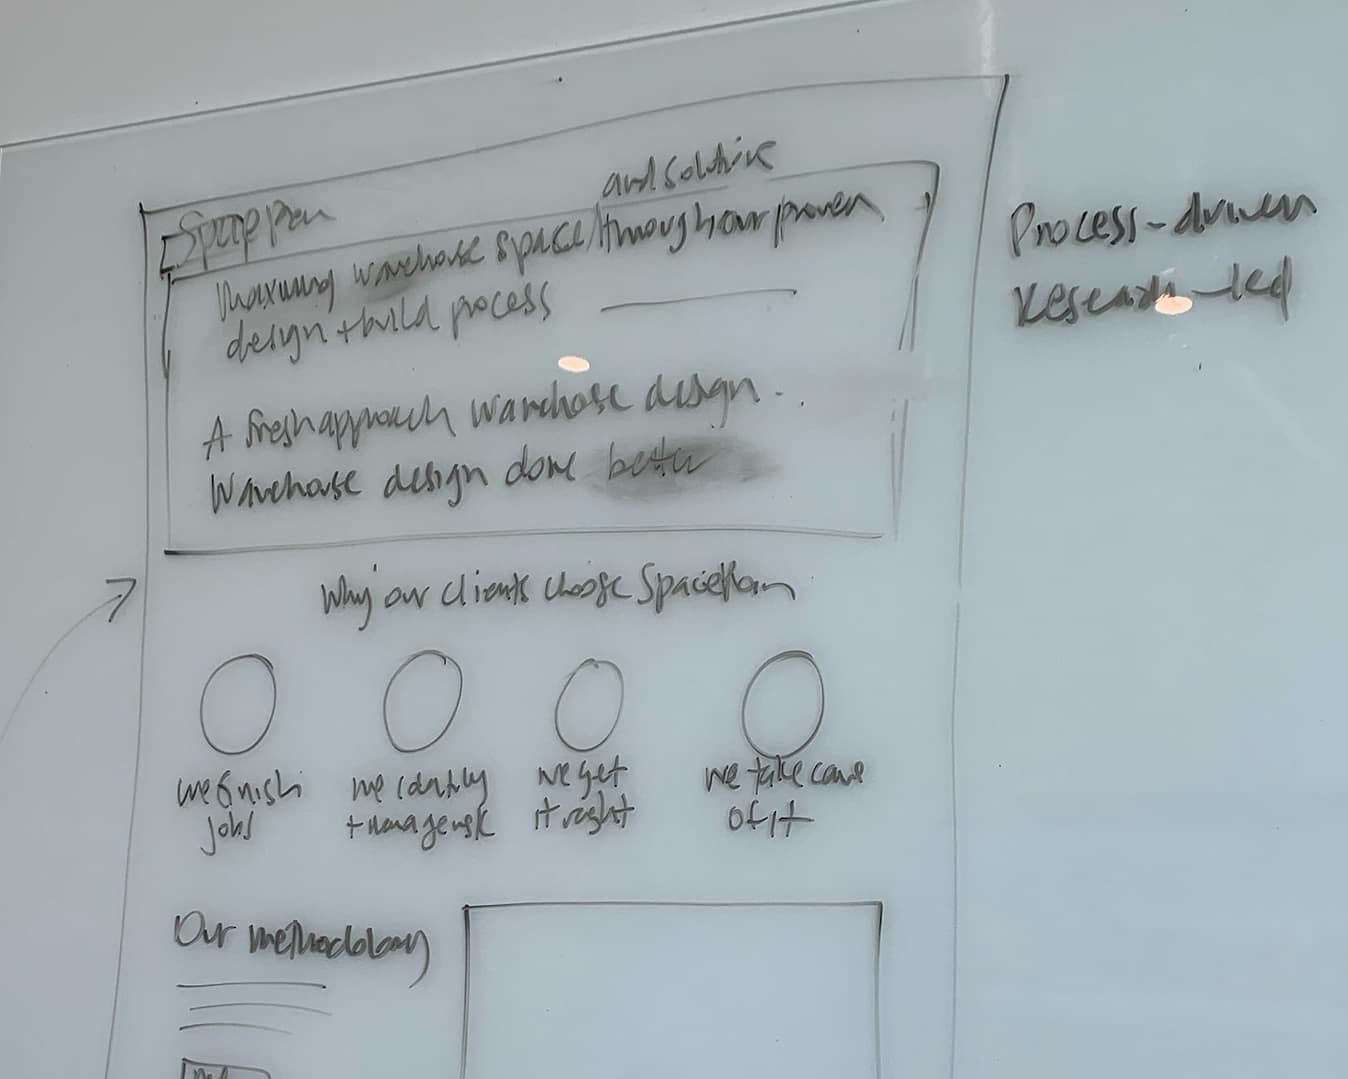 Spaceplan
and solutive
Maximising warehouse space/through our proven
design + build process
A fresh approach warehouse design..
Warehouse design done better
Process-driven
Research-led
Why our clients choose SpacePlan
we finish
jobs
we identify
+ manage risk
we get
it right
we take care
of it
Our methodology